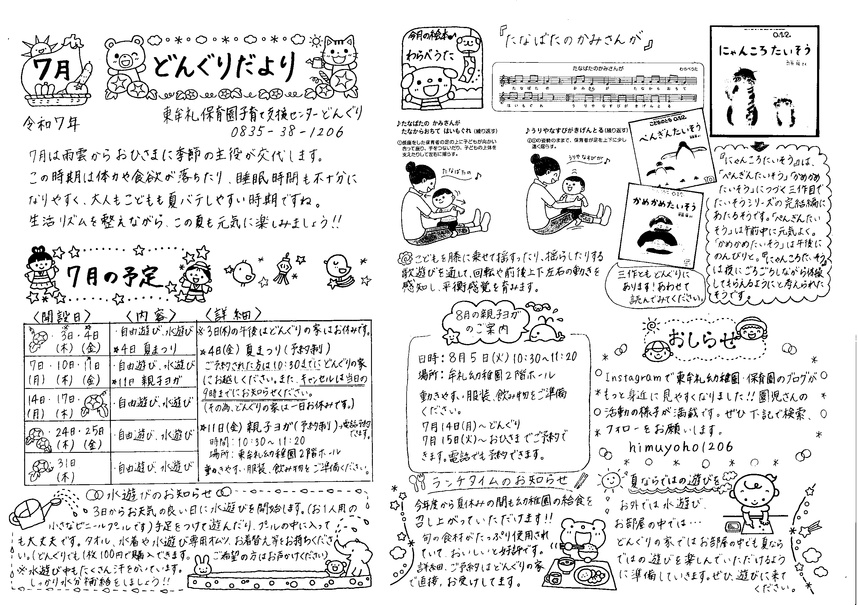 7月
どんぐりだより
令和7年
東牟礼保育園子育て支援センターどんぐり
0835-38-1206
7月は雨雲からおひさまに季節の主役が交代します。
この時期は体力や食欲が落ちたり、睡眠時間も不十分に
なりやすく、大人もこどもも夏バテしやすい時期ですね。
生活リズムを整えながら、この夏も元気に楽しみましょう!!
7月の予定
〈開設日〉 〈内容〉 〈詳細〉
3日・4日
(木) (金)
・自由遊び、水遊び
★4日 夏まつり
7日・10日・11日
(月) (木) (金)
・自由遊び、水遊び
★11日 親子ヨガ
14日・17日
(月) (木)
・自由遊び、水遊び
・24日・25日
(木) (金)
・自由遊び、水遊び
31日
(木)
・自由遊び、水遊び
※3日(木)の午後はどんぐりの家はお休みです。
★4日(金) 夏まつり(予約制)
ご予約された方は10:30までにどんぐりの家
にお越しください。また、キャンセルは当日の
9時までにお知らせください。
(その為、どんぐりの家は一日お休みです。)
★11日(金) 親子ヨガ(予約制)
時間:10:30〜11:20
場所:東牟礼幼稚園2階ホール
動きやすい服装、飲み物をご準備ください。
水遊びのお知らせ
3日からお天気の良い日に水遊びを開始します。(お1人用の
小さなビニールプールです)予定をつけて遊んだり、プールの中に入って
も大丈夫です。タオル、水着や水遊び専用パンツ、お着替え等をお持ちくださ
い。(どんぐりでも1枚100円で購入できます。ご希望の方はお声かけください)
※水遊び中もたくさん汗をかいています。
しっかり水分補給をしましょう!!
今月の絵本
わらべうた
『たなばたのかみさんが』
たなばたのかみさんが
わらべうた
♪たなばたの かみさんが
たなからおちて はいもぐれ(繰り返す)
♪うりやなすびがきげんとる(繰り返す)
たなばたの♪
うりやなすびが♪
こどもを膝に乗せて揺すったり、揺らしたりする
歌遊びを通して、回転や前後上下左右の動きを
感知し、平衡感覚を育みます。
0.1.2.
にゃんころたいそう
ぺんぎんたいそう
0.1.2.
かめかめたいそう
三作ともどんぐりに
あります!あわせて
読んでみてください。
『にゃんころたいそう』は、
『ぺんぎんたいそう』『かめかめ
たいそう』につづく三作目で
たいそうシリーズの完結編に
あたるそうです。『ぺんぎんたい
そう』は午前中に元気よく。
『かめかめたいそう』は午後に
のんびりと。『にゃんころたいそう』
は夜にごろごろしながら体操
してもらえるようにと考えられた
そうです。
8月の親子ヨガ
のご案内
日時:8月5日(火)10:30〜11:20
場所:牟礼幼稚園2階ホール
動きやすい服装、飲み物をご準備
ください。
7月14日(月)〜どんぐり
7月15日(火)〜おひさま でご予約で
きます。電話でも予約できます。
おしらせ
Instagramで東牟礼幼稚園・保育園のブログが
もっと身近に見やすくなりました!!園児さんの
活動の様子が満載です。ぜひ下記で検索、
フォローをお願いします。
himuyoho1206
ランチタイムのお知らせ
今年度から夏休みの間も幼稚園の給食を
召し上がっていただけます!!
旬の食材がたっぷり使用され
ていて、おいしいと好評です。
詳細、ご予約はどんぐりの家
で直接、お受けしてます。
夏ならではの遊びを
お外では水遊び、
お部屋の中では…
どんぐりの家ではお部屋の中でも夏なら
ではの遊びを楽しんでいただけるよう
に準備していきます。ぜひ、遊びに来て
ください。